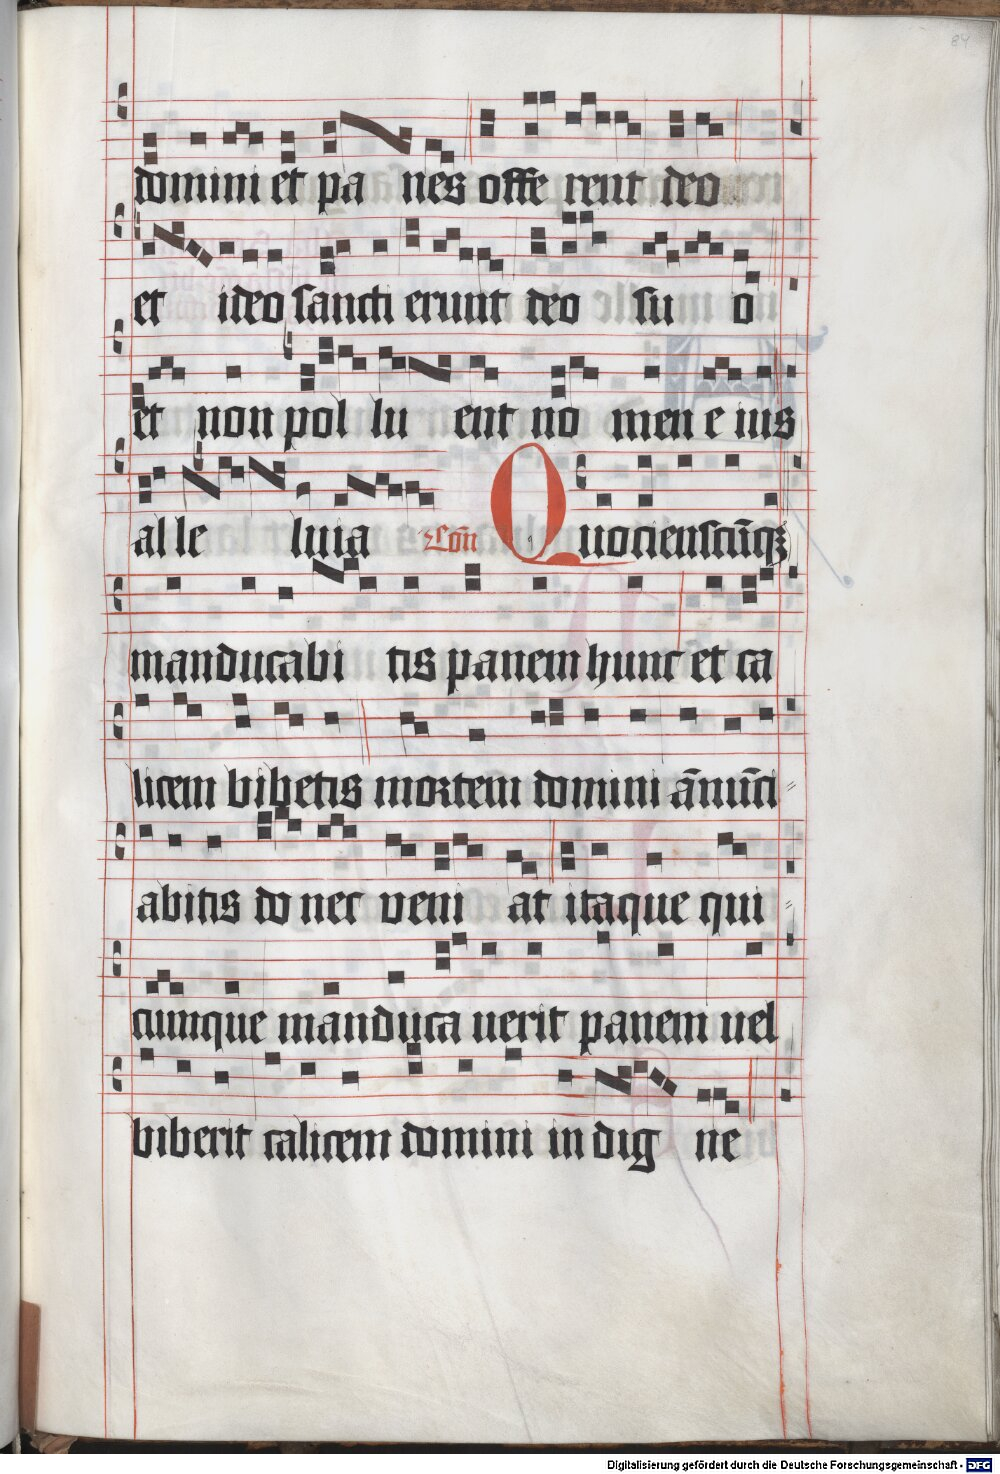 84
domini et pa nes offe rent deo
et ideo sancti erunt deo su o
et non pol lu ent no men e ius
al le luia Cōn Quociensc̄ūqꝫ
manducabi tis panem hunc et ca
licem bibetis mortem domini ānūci
abitis do nec veni at itaque qui
cunque manduca uerit panem uel
biberit calicem domini in dig ne
Digitalisierung gefördert durch die Deutsche Forschungsgemeinschaft - DFG